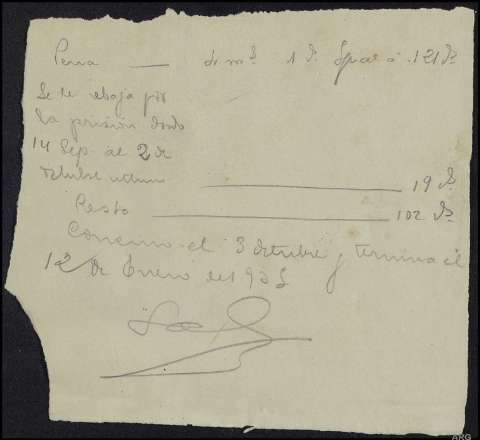 Pena — 4 ms 1 d. Igual a 121 ds
Se le rebaja por
la prisión desde
14 Sep. al 2 de
Octubre ultimo — 19 ds
Resto — 102 ds
Comienza el 3 octubre y termina el
12 de Enero de 193
ARG